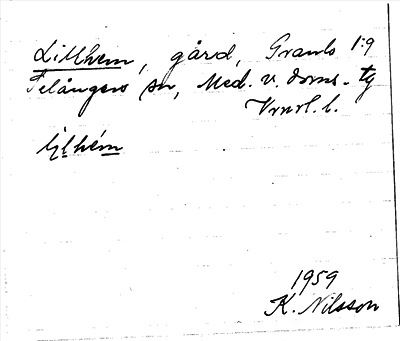 Lillhem, gård, Granlo 1:9
Selångers sn, Med. v. doms. tg
Vnrl. l.
lịlhém
1959
K. Nilsson